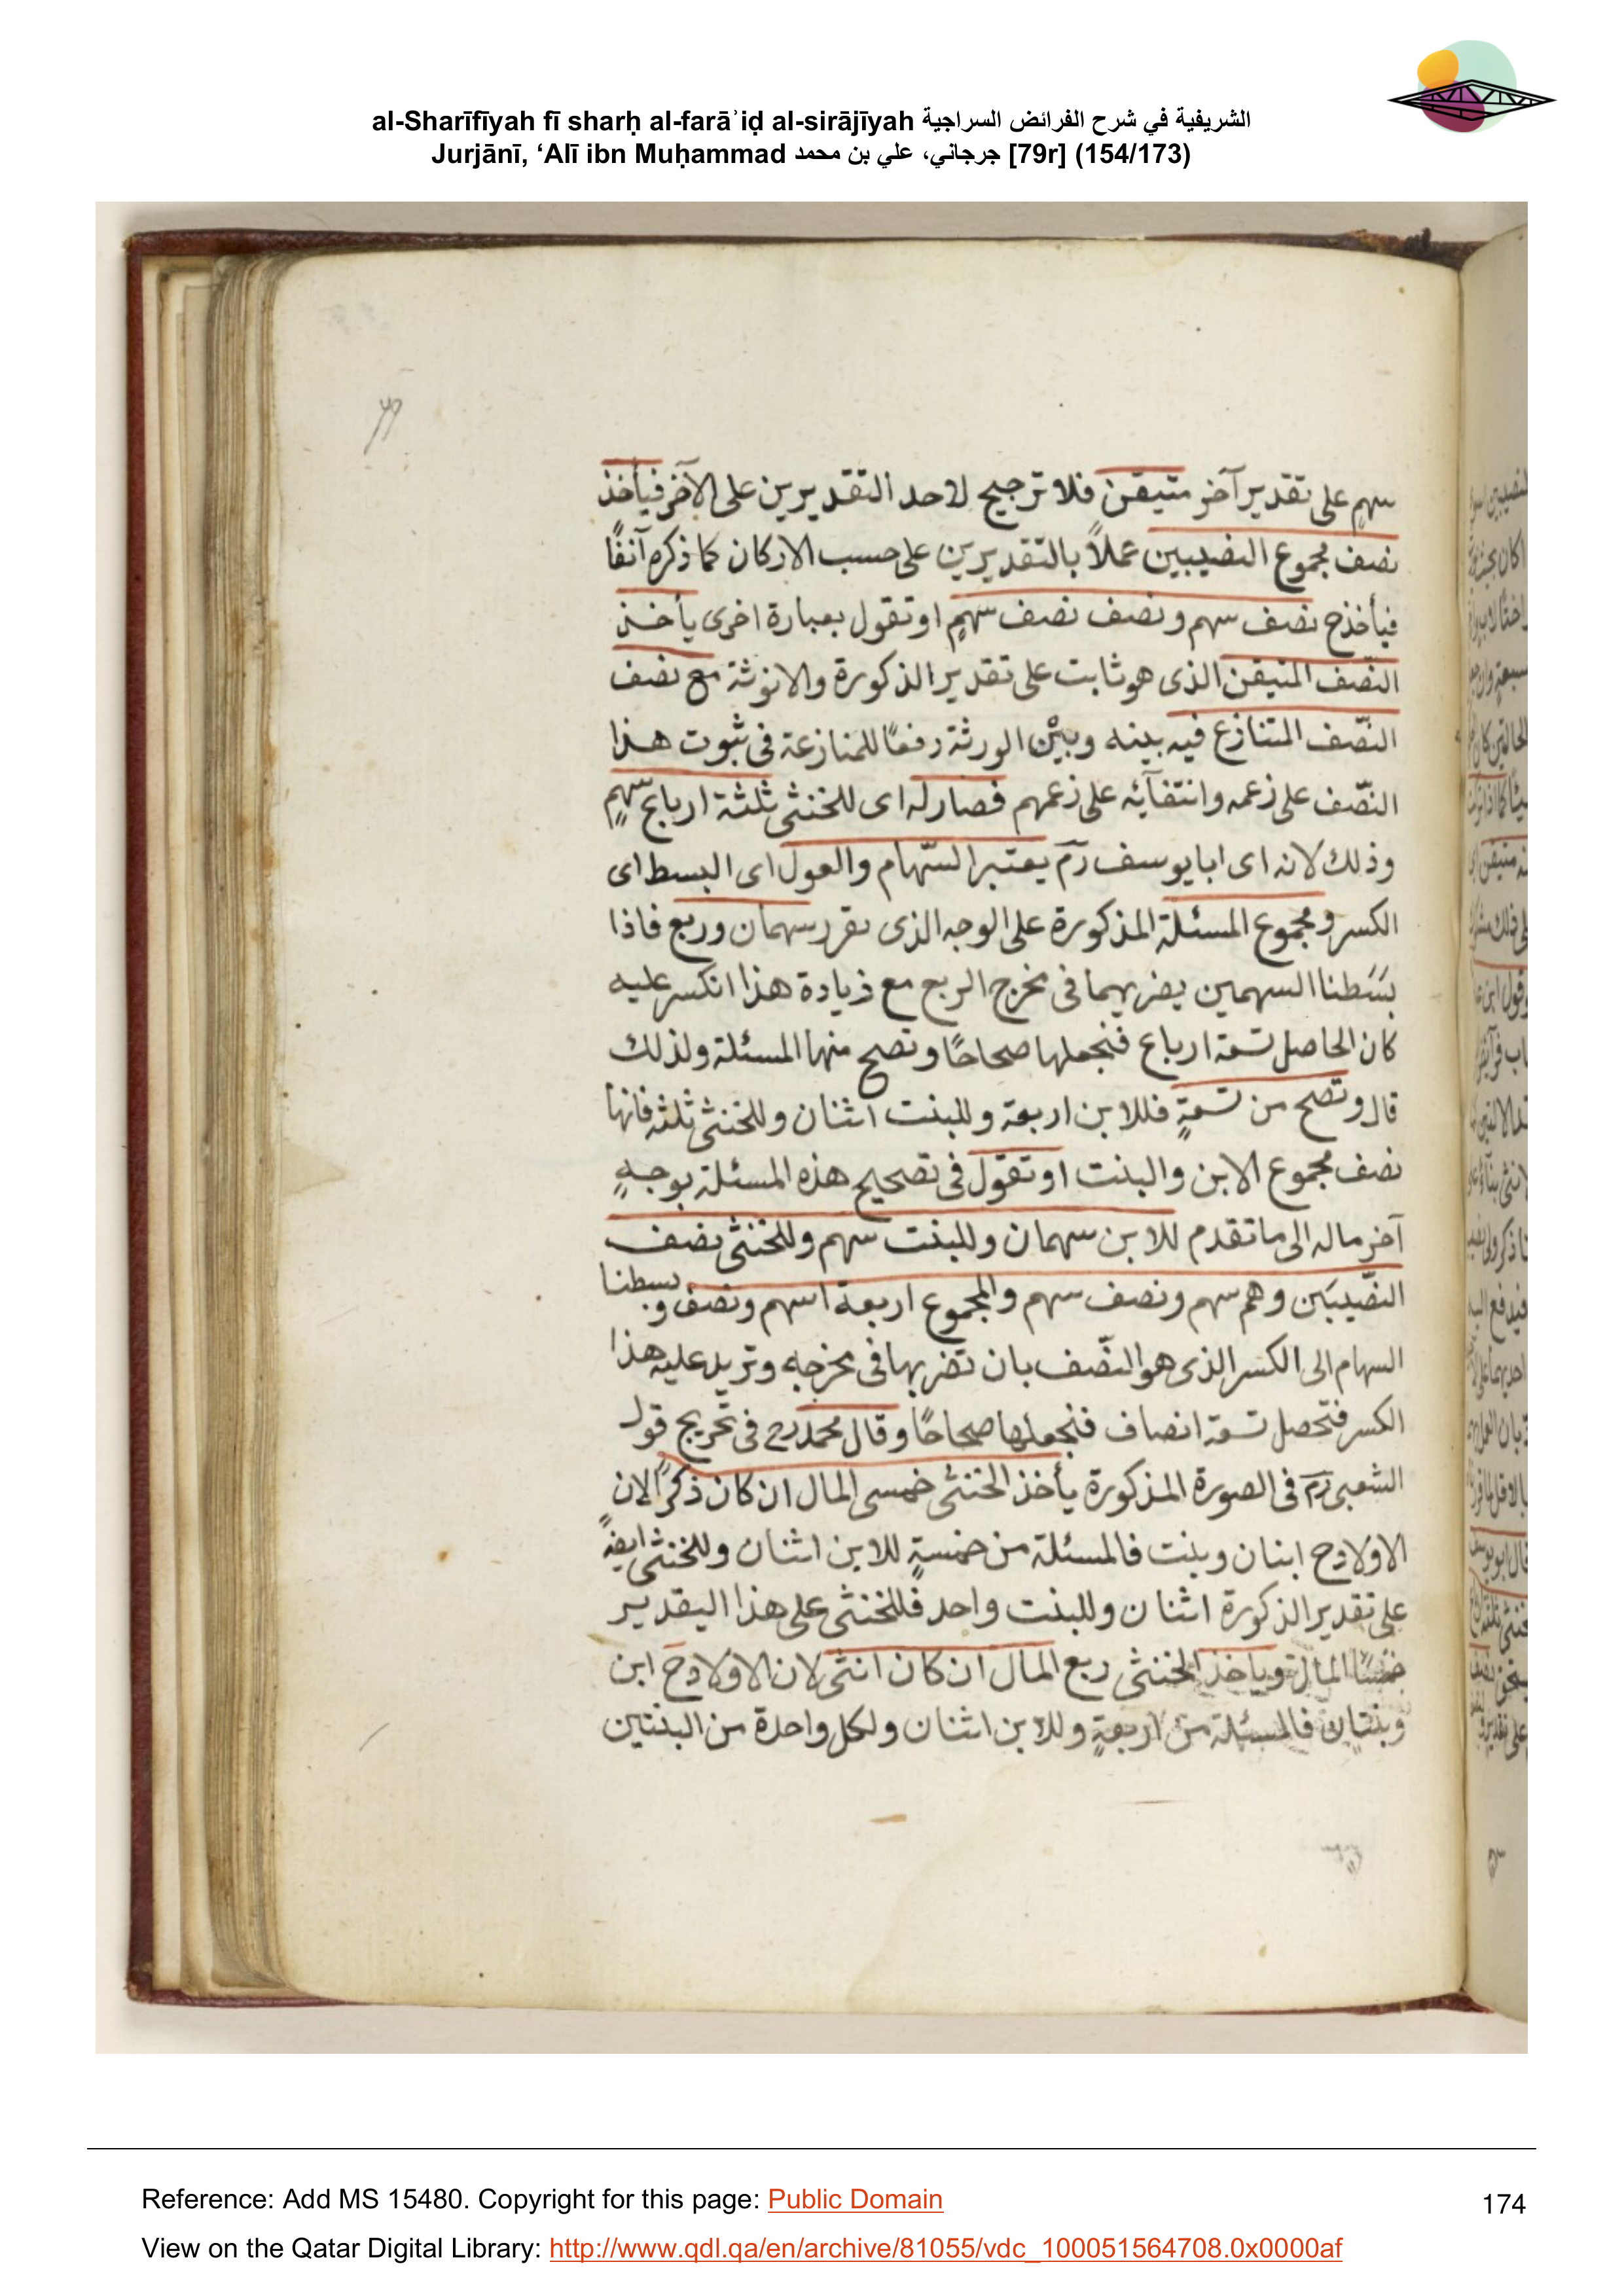 al-Sharīfīyah fī sharḥ al-farāʾiḍ al-sirājīyah الشريفية في شرح الفرائض السراجية
Jurjānī, ‘Alī ibn Muḥammad جرجاني، علي بن محمد [79r] (154/173)
سهم على تقدير آخر متيقن فلا ترجيح لاحد التقديرين على الآخر فيأخذ
نصف مجموع النصيبين عملاً بالتقديرين على حسب الاركان كما ذكره آنفًا
فيأخذ ح نصف سهم ونصف نصف سهمٍ او تقول بعبارة اخرى يأخذ
النّصف المتيقن الذى هو ثابت على تقدير الذكورة والانوثة مع نصف
النّصف المتنازع فيه بينه وبين الورثة رفعًا للمنازعة فى ثبوت هذا
النّصف على زعمه وانتفآئه على زعمهم فصار له اى للخنثى ثلثة ارباع سهمٍ
وذلك لانه اى ابا يوسف رم يعتبر السّهام والعول اى البسط اى
الكسر ومجموع المسئلة المذكورة على الوجه الذى نقرر سهمان وربع فاذا
بسَطنا السهمين يضربهما فى مخرج الربع مع زيادة هذا انكسر عليه
كان الحاصل تسعة ارباع فنجعلها صحاحًا وتصح منها المسئلة ولذلك
قال وتصح من تسعةٍ فللابن اربعة وللبنت اثنان وللخنثى ثلثة فانها
نصف مجموع الابن والبنت او تقول فى تصحيح هذه المسئلة بوجهٍ
آخر ماله الى ما تقدم للابن سهمان وللبنت سهم وللخنثى نصف
النّصيبَين وهم سهم ونصف سهم والمجموع اربعة اسهم ونصف وبسطنا
السهام الى الكسر الذى هو النّصف بان تضربها فى مخرجه وتزيد عليه هذا
الكسر فتحصل تسعة انصاف فنجعلها صحاحًا وقال محمد رح فى تخريج قول
الشعبى رم فى الصورة المذكورة يأخذ الخنثى خمسى المال ان كان ذكرًا لان
الاولاد ح ابنان وبنت فالمسئلة من خمسةٍ للابن اثنان وللخنثى ايضً
على تقدير الذكورة اثنان وللبنت واحد فللخنثى على هذا التقدير
خمسا المال وياخذ الخنثى ربع المال ان كان انثى لان الاولاد ح ابن
وبنتان فالمسئلة من اربعةٍ وللابن اثنان ولكل واحدة من البنتين
Reference: Add MS 15480. Copyright for this page: Public Domain
174
View on the Qatar Digital Library: http://www.qdl.qa/en/archive/81055/vdc_100051564708.0x0000af